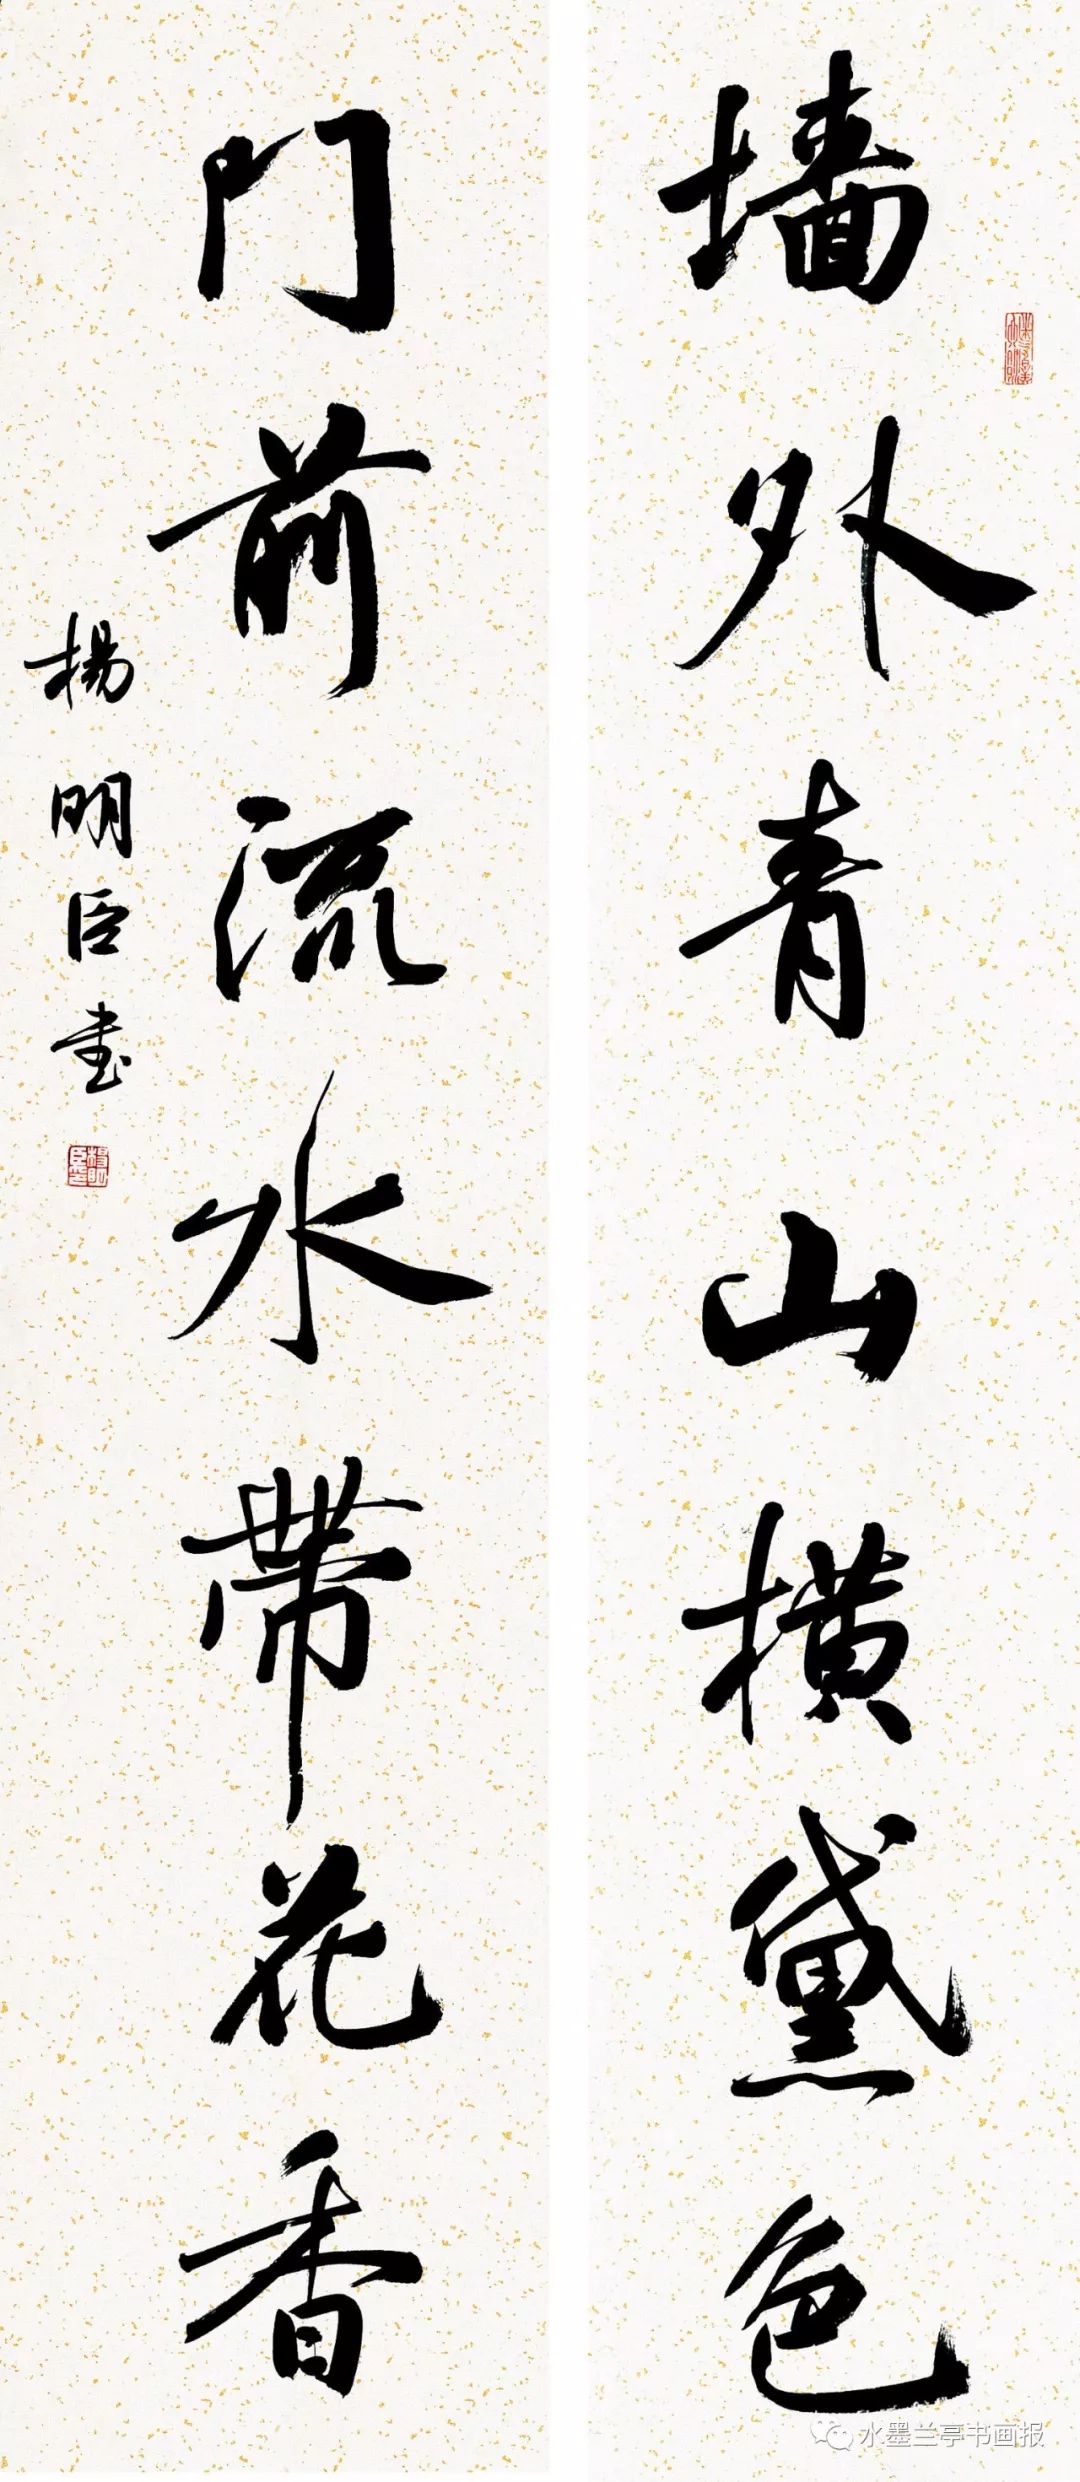 墙外青山横黛色
门前流水带花香
杨明臣书
水墨兰亭书画报